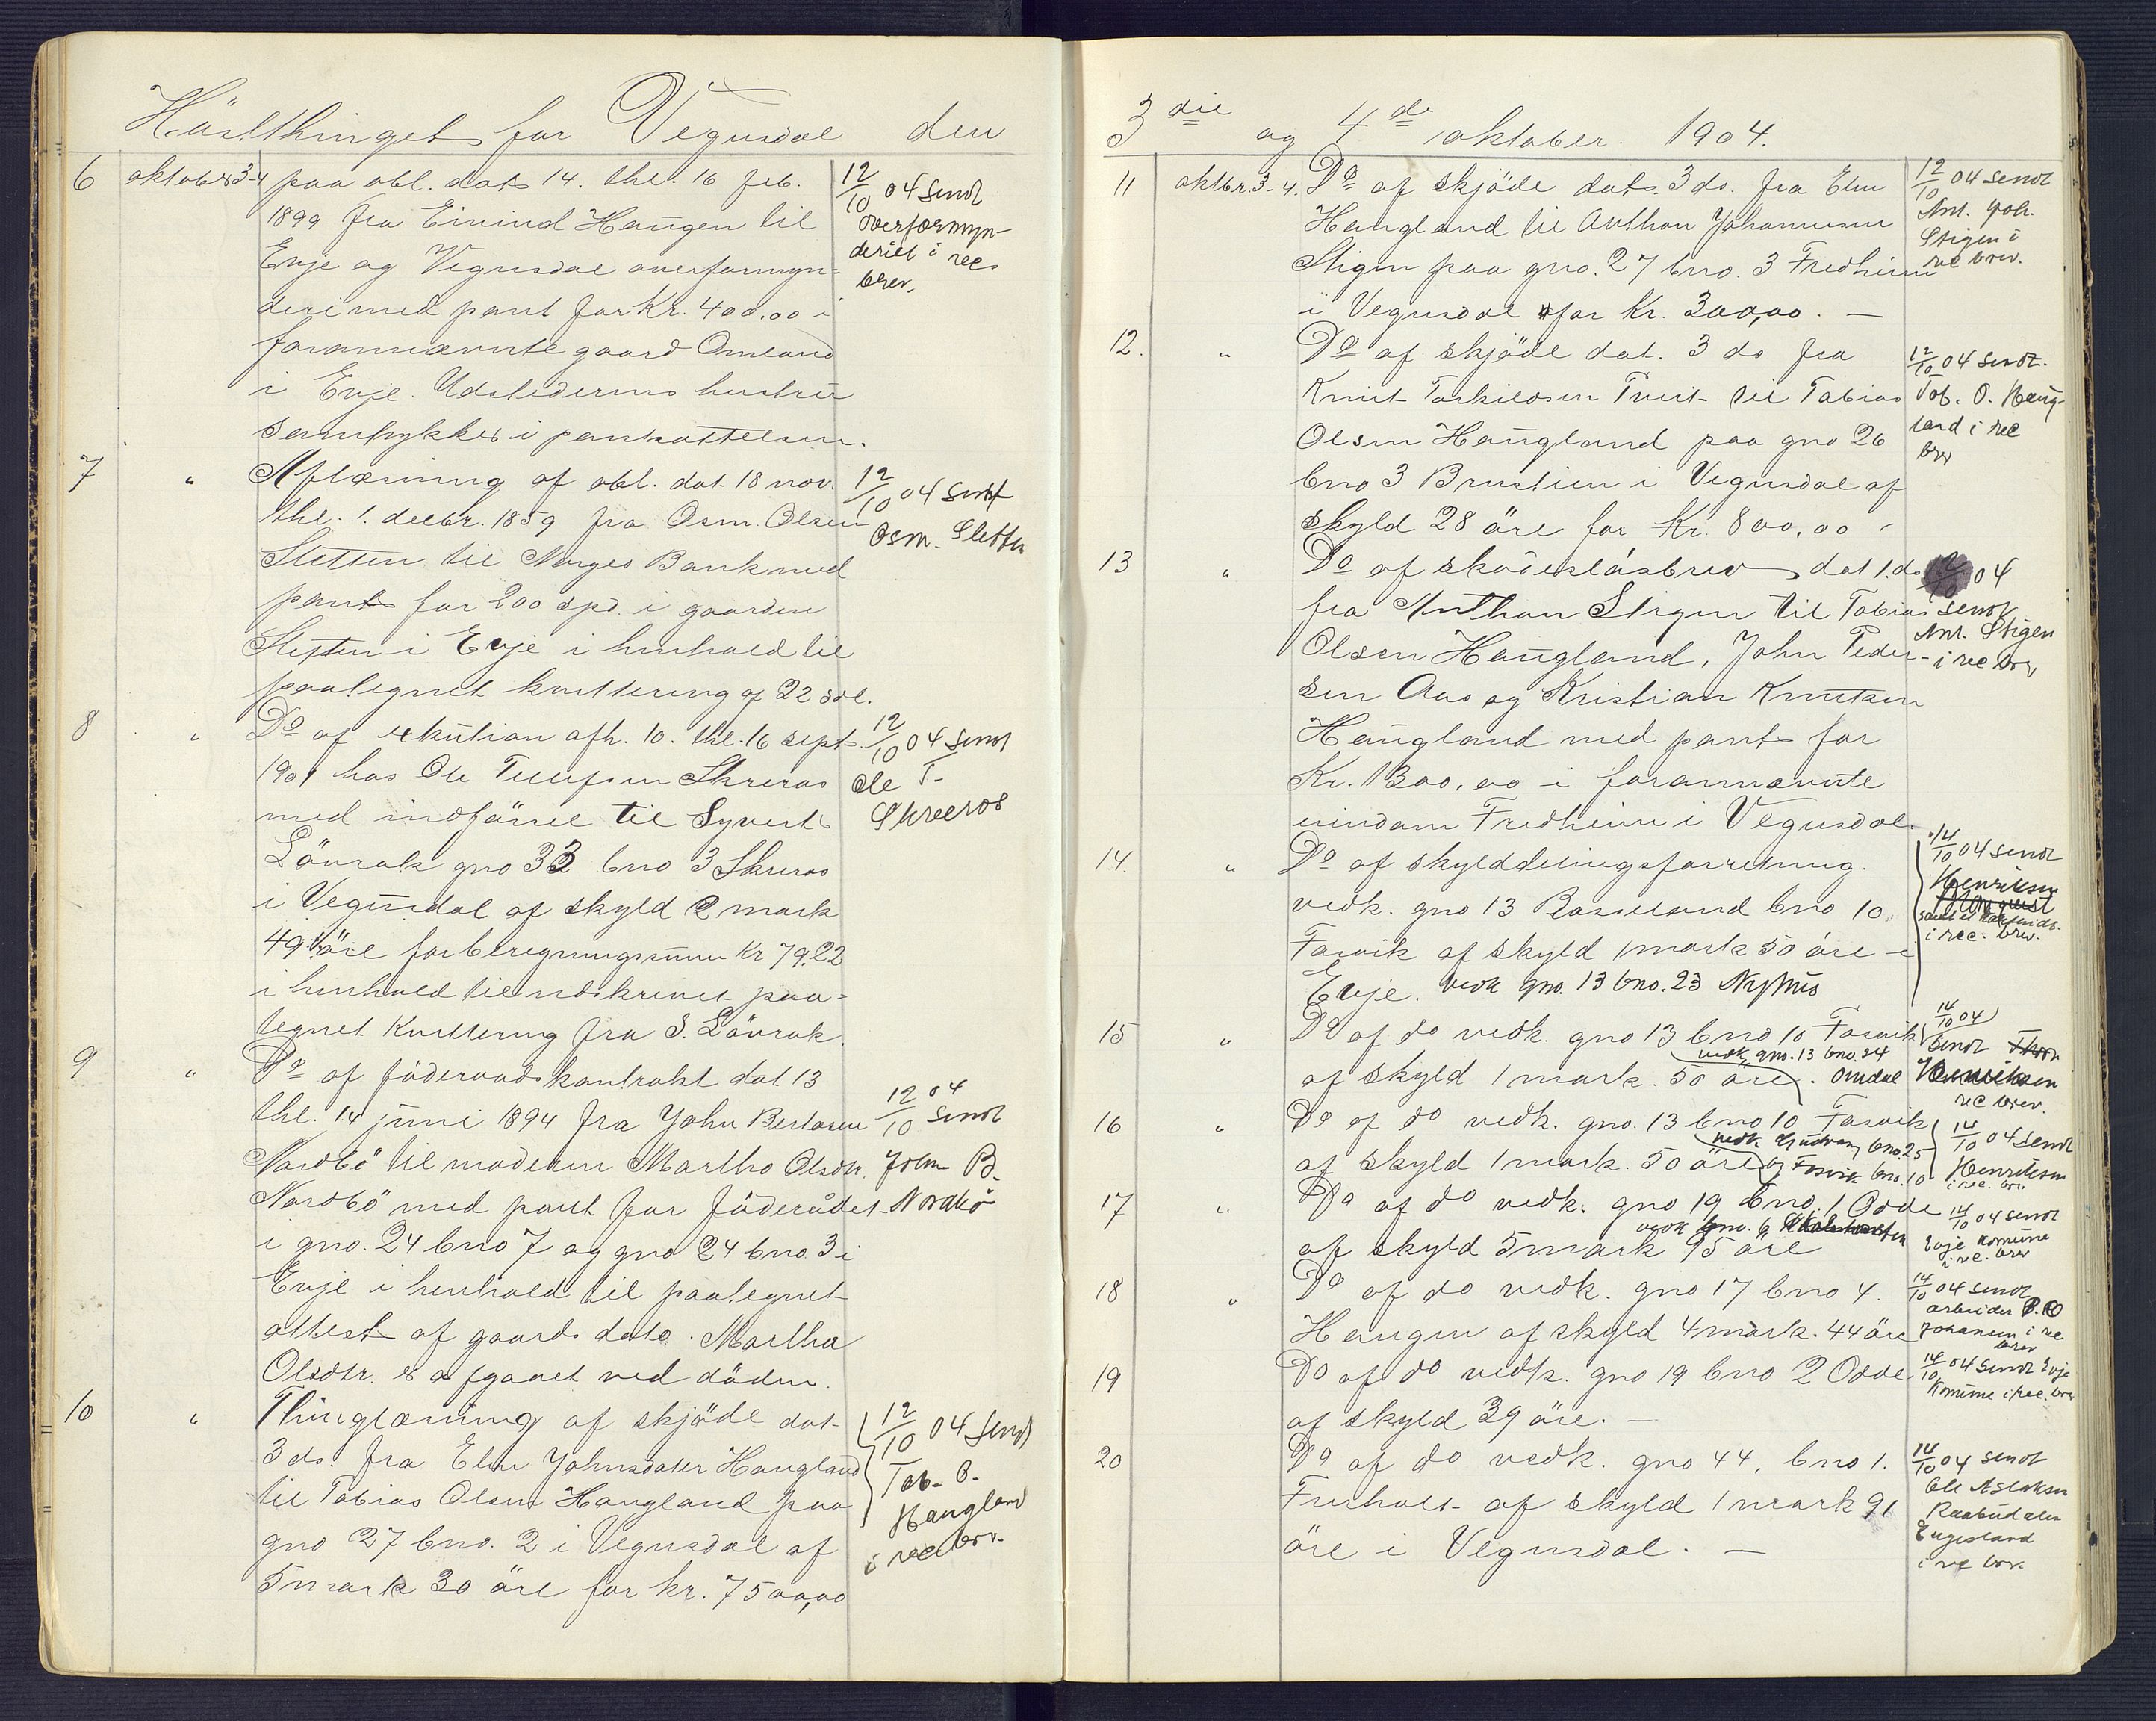 Höstthinget for Vegusdal den
6 oktober 3-4 paa obl. dat. 14. thl. 16 feb. 12/10 04 sendt
1899 fra Eivind Haugen til overformyn-
Evje og Vegusdal overformyn- deriet i rec
deri med pant for Kr. 400,00 i brev.
forannævnte gaard Omland
i Evje. Udstederens hustru
samtykker i pantsættelsen.
7 " Aflæsning af obl. dat. 18 nov. 12/10 04 sendt
thl. 1. decbr. 1859 fra Osm. Olsen Osm. Sletten
Sletten til Norges Bank med
pant for 200 spd. i gaarden
Sletten i Evje i henhold til
paategnet kvittering af 22 sdl.
8 " Do af exkution afh. 10. thl. 16 sept. 12/10 04 sendt
1901 hos Ole Tellefsen Skreros Ole T.
med indförsel til Syvert Skreros
Lövrak gno 33 bno 3 Skreros
i Vegusdal af skyld 2 mark
49 öre for beregningssum Kr 79,22
i henhold til udskrevet paa-
tegnet Kvittering fra S. Lövrak.
9 " Do af föderaadskontrakt dat. 13
thl. 14 juni 1894 fra John Bertosen 12/10 04 sendt
Nordbö til moderen Martha Olsdtr. John B.
Nordbö med pant for föderådet Nordbö
i gno. 24 bno 7 og gno 24 bno. 3 i
Evje i henhold til paategnet
attest af gaards dato. Martha
Olsdtr. er afgaaet ved döden.
10 " Thinglæsning af skjöde dat. 12/10 04 sendt
3 ds. fra Eline Johnsdater Haugland Tob. O.
til Tobias Olsen Haugland paa Haugland
gno 27 bno. 2 i Vegusdal af i rec brv.
5 mark 30 öre for kr. 7500,00
3die og 4de oktober. 1904.
11 oktbr. 3-4. Do af skjöde dat. 3 ds. fra Eline 12/10 04 sendt
Haugland til Anthon Johannesen Ant. Joh.
Stigen paa gno. 27 bno. 3 Fredheim Stigen i
i Vegusdal for Kr. 300,00. — rec brev.
12. " Do af skjöde dat. 3 ds fra 12/10 04 sendt
Knut Torkildsen Tveit til Tobias Tob. O. Haug-
Olsen Haugland paa gno 26 land i rec
bno 3 Brustien i Vegusdal af brev
skyld 28 öre for Kr. 800,00
13 " Do af skadeslösbrev dat 1. ds 04
fra Anthon Stigen til Tobias sendt
Olsen Haugland, John Peder- Ant. Stigen
sen Aas og Kristian Knutsen i rec brev
Haugland med pant for
Kr. 1300,00 i forannævnte
eiendom Fredheim i Vegusdal.
14. " Do af skylddelingsforretning. 14/10 04 sendt
vedk. gno 13 Rosseland bno 10. Henriksen
Farvik af skyld 1 mark 50 öre i i rec. brev.
Evje. vedk gno. 13 bno. 23 Nyhus
15 " Do af do vedk. gno 13 bno 10 Farvik 14/10 04
vedk gno. 13 bno. 24 sendt
af skyld 1 mark. 50 öre. Omdal Henriksen
rec brev.
16 " Do af do vedk. gno. 13 bno 10 Farvik 14/10 04 sendt
vedk bno. 25
af skyld 1 mark. 50 öre og Farvik bno. 10 Henriksen
i rec. brv.
17 " Do af do vedk. gno 19 bno. 1 Odde 14/10 04 sendt
vedk bno. 6
af skyld 5 mark 95 öre Evje Komune
i rec. brev
18 " Do af do vedk. gno 17 bno 4. 14/10 04 sendt
arbeider
Haugen af skyld 4 mark. 44 öre Johansen i rec
brev
19 Do af do vedk. gno 19 bno 2 Odde 14/10 04 sendt Evje
Komune i rec. brev
af skyld 39 öre. —
20 Do af do vedk. gno 44, bno 1. 14/10 04 sendt
Furholt af skyld 1 mark 91 Ole Aslaksen
öre i Vegusdal. — Raabudalen
Engesland
i rec brv.